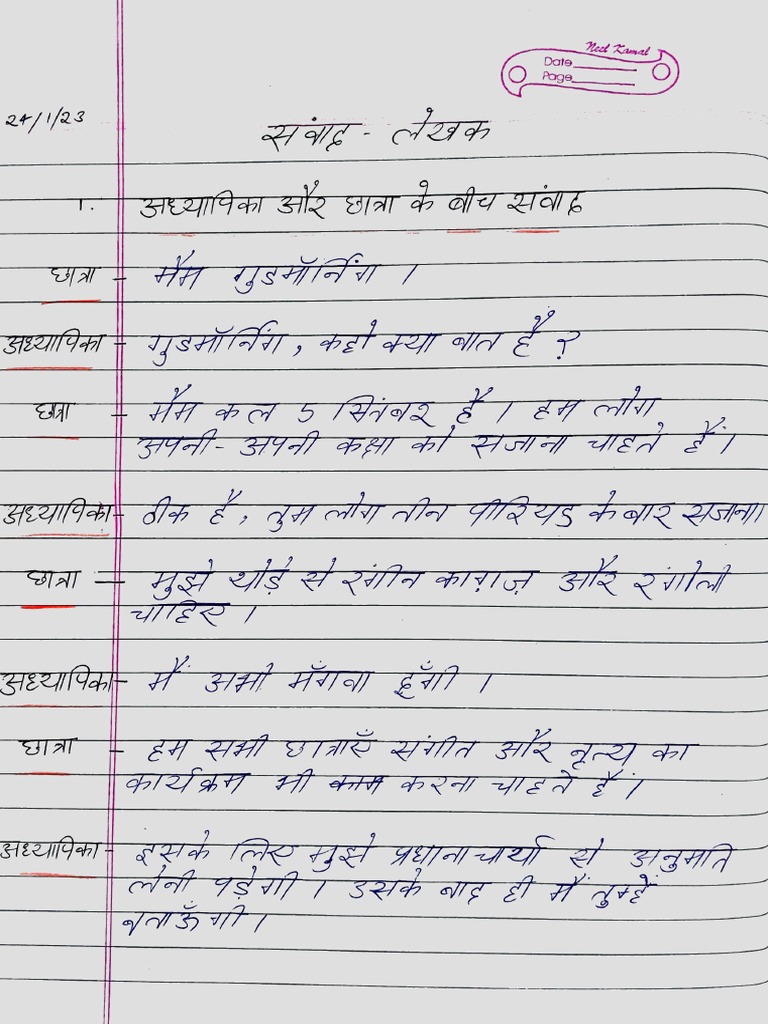 Neel Kamal
Date
Page
24/1/23
संवाद - लेखक
1. अध्यापिका और छात्रा के बीच संवाद
छात्रा - मैम गुडमॉर्निंग ।
अध्यापिका - गुडमॉर्निंग, कहो क्या बात है ?
छात्रा - मैम कल 5 सितंबर है । हम लोग
अपनी - अपनी कक्षा को सजाना चाहते हैं ।
अध्यापिका - ठीक है, तुम लोग तीन पीरियड के बार सजाना।
छात्रा - मुझे थोड़े से रंगीन काग़ज़ और रंगोली
चाहिए ।
अध्यापिका - मैं अभी मँगवा दूँगी ।
छात्रा - हम सभी छात्राएँ संगीत और नृत्य का
कार्यक्रम भी काम करना चाहते हैं ।
अध्यापिका - इसके लिए मुझे प्रधानाचार्या से अनुमति
लेनी पड़ेगी । उसके बाद ही मैं तुम्हें
बताऊँगी ।